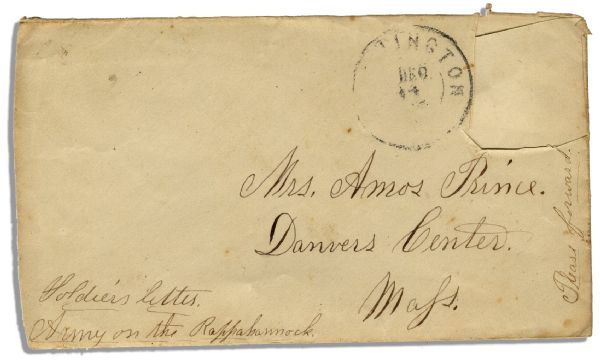 TINGTON
DEC
14
Mrs. Amos Prince.
Danvers Center.
Mass.
Soldiers letter.
Army on the Rappahannock.
Please forward.